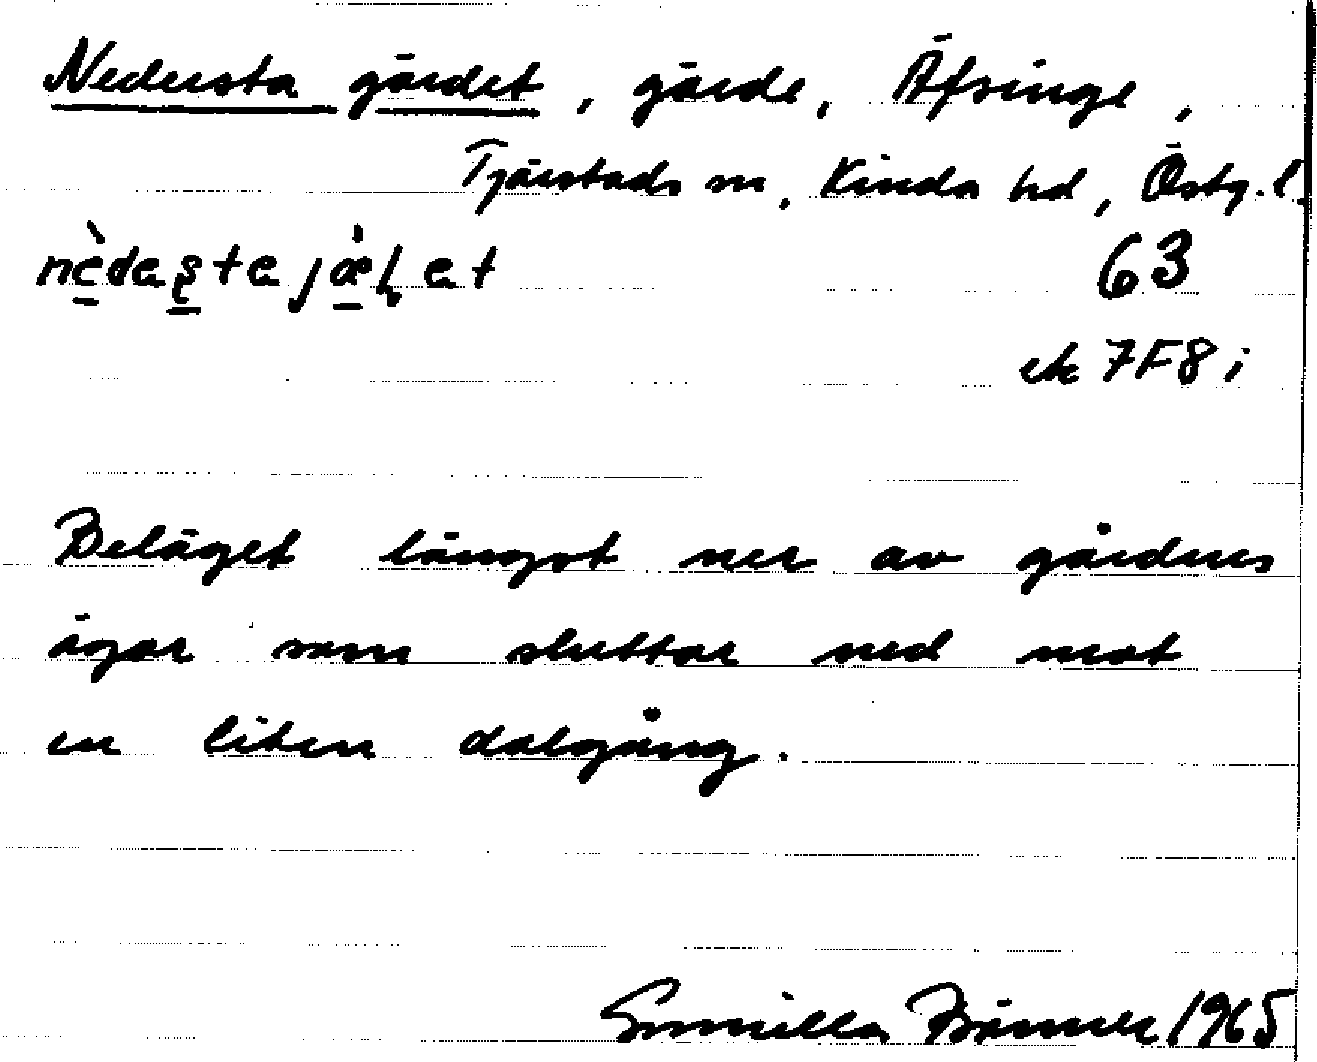 Nedersta gärdet, gärde, Äfsinge,
Tjärstads sn, Kinda hd, Östg.l.
63
ek 7F8i
Beläget längst ner av gårdens
ägor som sluttar ned mot
en liten dalgång.
Gunilla 1965